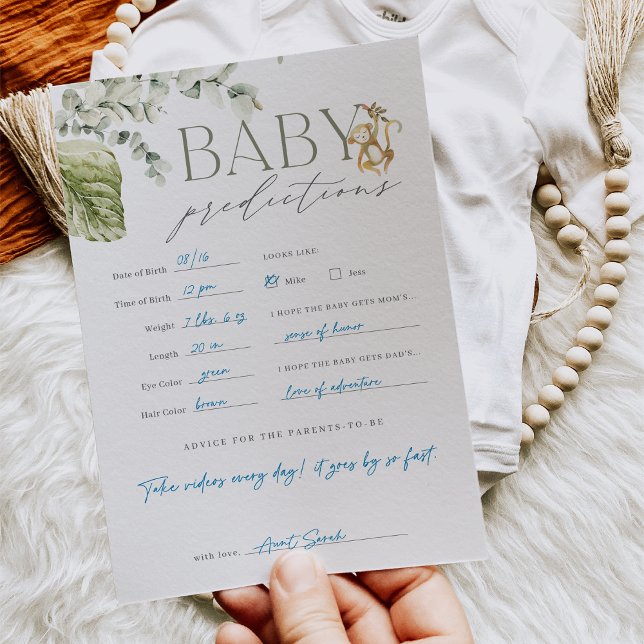 BABY
predictions
Date of Birth 08/16
Time of Birth 12 pm
Weight 7 lbs. 6 oz
Length 20 in
Eye Color green
Hair Color brown
LOOKS LIKE:
Mike Jess
I HOPE THE BABY GETS MOM'S...
sense of humor
I HOPE THE BABY GETS DAD'S...
love of adventure
ADVICE FOR THE PARENTS-TO-BE
Take videos every day! it goes by so fast.
with love, Aunt Sarah